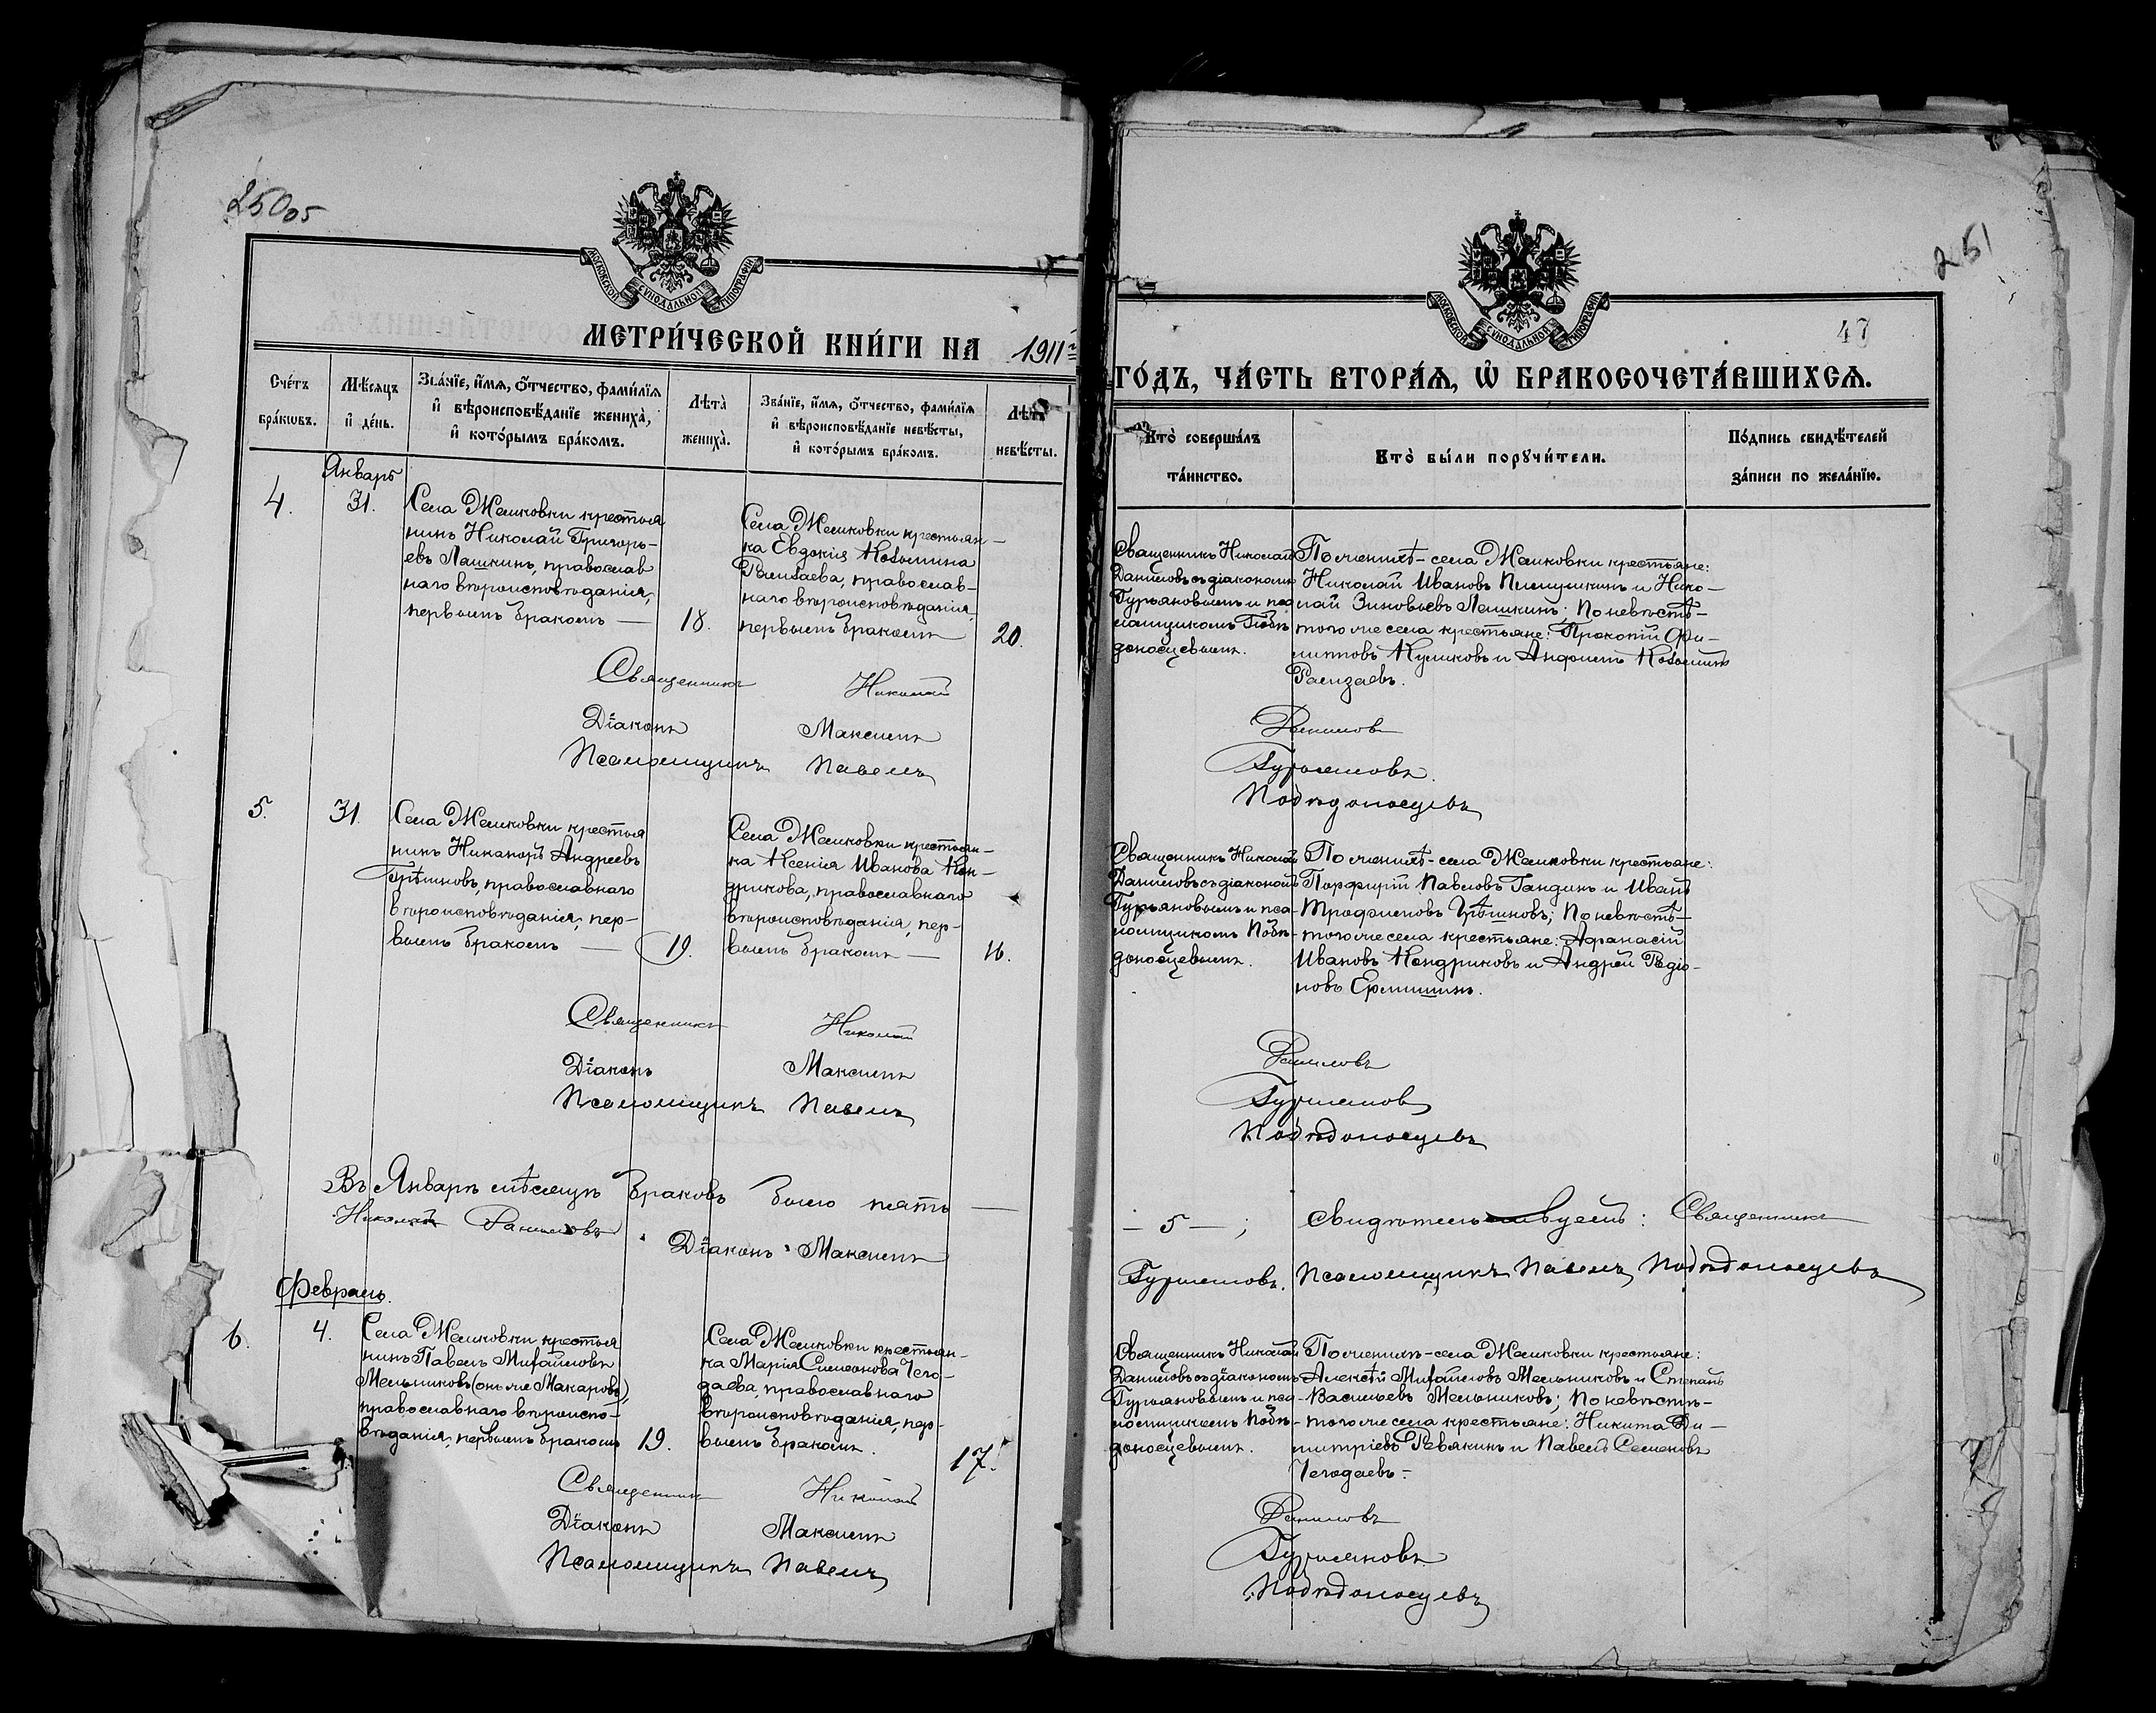 250 об
251
47
МОСКОВСКОЙ СѴНОДАЛЬНОЙ ТИПОГРАФІИ
МОСКОВСКОЙ СѴНОДАЛЬНОЙ ТИПОГРАФІИ
МЕТРИ́ЧЕСКОЙ КНИ́ГИ НА 1911й
ГО́ДЪ, ЧА́СТЬ ВТОРА́Я, Ѡ БРАКОСОЧЕТА́ВШИХСЯ.
Сче́тъ
бра́кѡвъ.
Мѣ́сяцъ
и҆ де́нь.
Зва́нїе, и҆́мя, ѻ҆́тчество, фами́лїя
и҆ вѣроисповѣ́данїе жениха̀,
и҆ кото́рымъ бра́комъ.
Лѣта̀
жениха̀.
Зва́нїе, и҆́мя, ѻ҆́тчество, фами́лїя
и҆ вѣроисповѣ́данїе невѣ́сты,
и҆ кото́рымъ бра́комъ.
Лѣта̀
невѣ́сты.
Кто̀ соверша́лъ
та́инство.
Кто̀ бы́ли порꙋчи́тели.
По́дпись свидѣ́телей
за́писи по жела́нїю.
Январь
4.
31.
Села Жемковки крестья
нинъ Николай Григорь-
евъ Лашкинъ, православ
наго вѣроисповѣданія,
первымъ бракомъ —
18.
Села Жемковки крестьян-
ка Евдокія Козьмина
православ-
наго вѣроисповѣданія,
первымъ бракомъ
20.
Священникъ Николай
Даниловъ съ діакономъ
Гурьяновымъ и пса
ломщикомъ Побѣ
доносцевымъ.
По женихѣ - села Жемковки крестьяне:
Николай Ивановъ и Нико-
лай Зиновьевъ Лашкинъ; По невѣстѣ-
того же села крестьяне: Прокопій Фи-
липповъ Куликовъ и Анфимъ Козьминъ
Священникъ Николай Даниловъ
Діаконъ Максимъ Гурьяновъ.
Псаломщикъ Павелъ Побѣдоносцевъ
5.
31.
Села Жемковки крестья
нинъ Никаноръ Андреевъ
Грѣшновъ, православнаго
вѣроисповѣданія, пер-
вымъ бракомъ —
19.
Села Жемковки крестьян-
ка Ксенія Иванова Кон-
дрикова, православнаго
вѣроисповѣданія, пер-
вымъ бракомъ —
16.
Священникъ Николай
Даниловъ съ діакономъ
Гурьяновымъ и пса-
ломщикомъ Побѣ-
доносцевымъ.
По женихѣ - села Жемковки крестьяне:
Порфирій Павловъ Гандинъ и Иванъ
Трофимовъ Грѣшновъ; По невѣстѣ-
того же села крестьяне: Афанасій
Ивановъ Кондриковъ и Андрей Родіо-
новъ Ермишинъ.
Священникъ Николай Даниловъ
Діаконъ Максимъ Гурьяновъ
Псаломщикъ Павелъ Побѣдоносцевъ
Въ Январѣ мѣсяцѣ браковъ было пять — – 5 – ; свидѣтельствуемъ: Священникъ
Николай Даниловъ Діаконъ Максимъ Гурьяновъ. Псаломщикъ Павелъ Побѣдоносцевъ
Февраль.
6.
4.
Села Жемковки крестья
нинъ Павелъ Михайловъ
Мельниковъ (онъ же Макаровъ)
православнаго вѣроиспо-
вѣданія, первымъ бракомъ
19.
Села Жемковки крестьян-
ка Марія Симеонова Чего-
даева, православнаго
вѣроисповѣданія, пер-
вымъ бракомъ.
17.
Священникъ Николай
Даниловъ съ діакономъ
Гурьяновымъ и пса-
ломщикомъ Побѣ-
доносцевымъ.
По женихѣ - села Жемковки крестьяне:
Алексѣй Михайловъ Мельниковъ и Степанъ
Васильевъ Мельниковъ; По невѣстѣ-
того же села крестьяне: Никита Ди-
митріевъ Ревякинъ и Павелъ Семеновъ
Чегодаевъ -
Священникъ Николай Даниловъ
Діаконъ Максимъ Гурьяновъ
Псаломщикъ Павелъ Побѣдоносцевъ